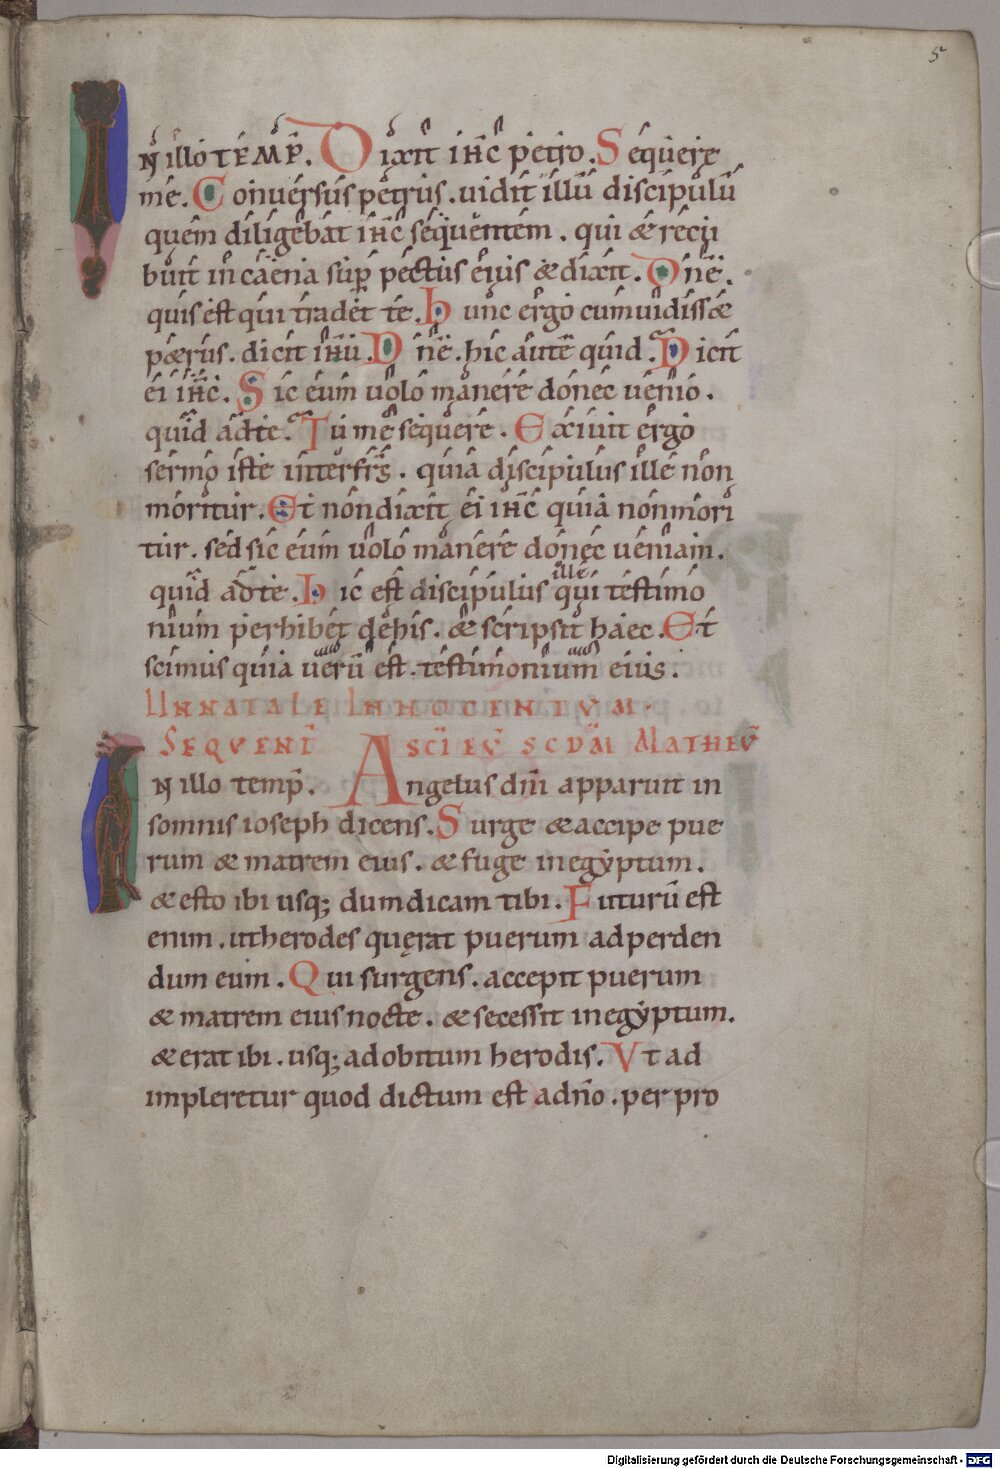 5
IN illo TEMP̄. Dixit ih̄c petro. Sequere
me. Conuersus petrus. uidit illū discipulū
quem diligebat ih̄c sequentem. qui & recu
buit in caena sup̄ pectus eius & dixit. Dn̄e.
quis est qui tradet te. hunc ergo cum uidiss&
p&rus. dicit ih̄u. Dn̄e. hic autē quid. Dicit
ei ih̄c. Sic eum uolo manere donec uenio.
quid ad te. Tu me sequere. Exiuit ergo
sermo iste inter fr̄s. quia discipulus ille non
moritur. Et non dixit ei ih̄c quia non mori
tur. sed sic eum uolo manere donec ueniam.
quid ad te. hic est discipulus ille qui testimo
nium perhibet de his. & scripsit haec. Et
scimus quia uerū est. testimonium eius.
IN NATALE INNOCENTVM.
SEQVENT̄ SC̄I EV̄ SCDM̄ MATHEV̄
IN illo temp̄. Angelus dn̄i apparuit in
somnis ioseph dicens. Surge & accipe pue
rum & matrem eius. & fuge in egyptum.
& esto ibi usq; dum dicam tibi. Futurū est
enim. ut herodes quęrat puerum ad perden
dum eum. Qui surgens. accepit puerum
& matrem eius nocte. & secessit in egyptum.
& erat ibi. usq; ad obitum herodis. Vt ad
impleretur quod dictum est a dn̄o. per pro
Digitalisierung gefördert durch die Deutsche Forschungsgemeinschaft - DFG